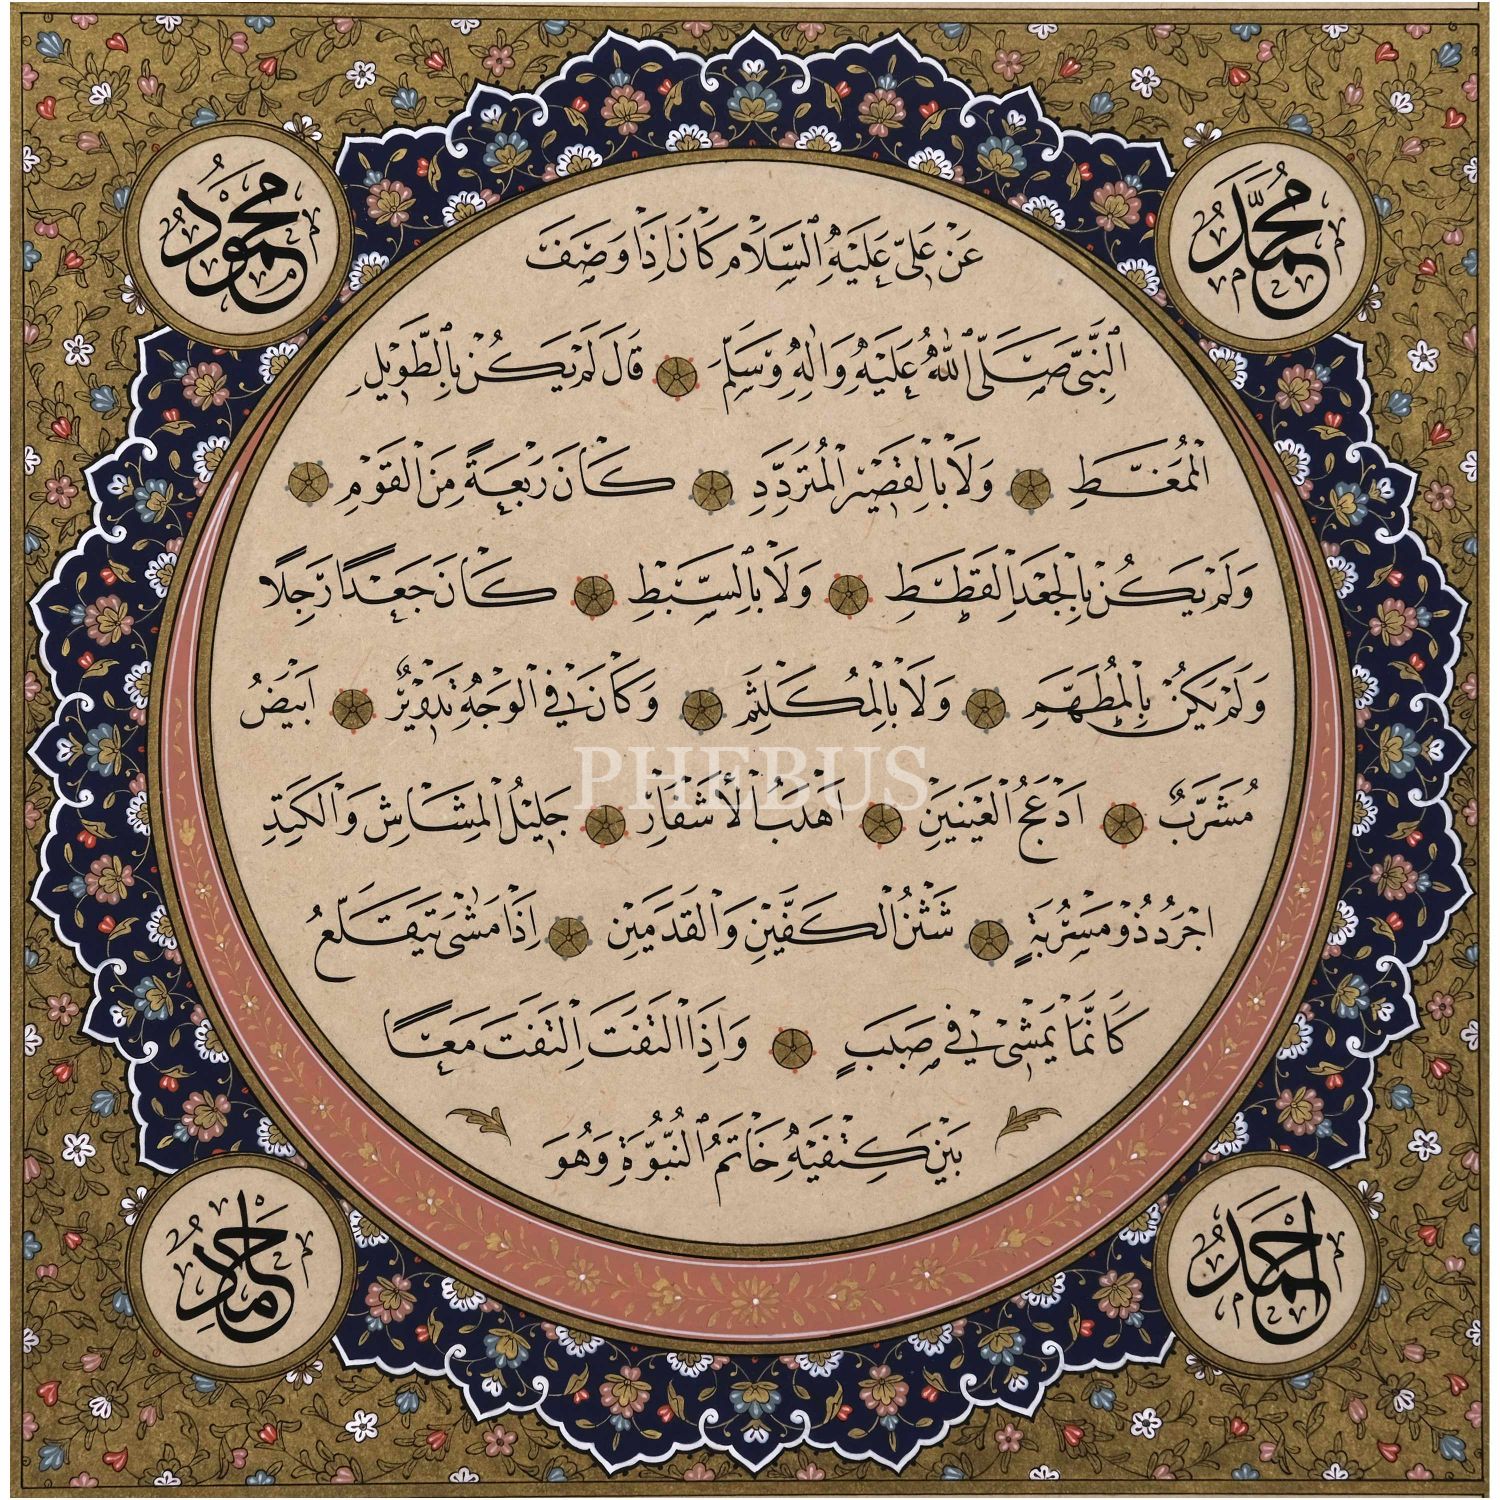 محمد
محمود
عَنْ عَلِيٍّ عَلَيْهِ السَّلَامُ كَانَ إِذَا وَصَفَ
النَّبِيَّ صَلَّى اللهُ عَلَيْهِ وَآلِهِ وَسَلَّمَ قَالَ لَمْ يَكُنْ بِالطَّوِيلِ
الْمُمَّغِطِ وَلَا بِالْقَصِيرِ الْمُتَرَدِّدِ كَانَ رَبْعَةً مِنَ الْقَوْمِ
وَلَمْ يَكُنْ بِالْجَعْدِ الْقَطَطِ وَلَا بِالسَّبْطِ كَانَ جَعْدًا رَجِلًا
وَلَمْ يَكُنْ بِالْمُطَهَّمِ وَلَا بِالْمُكَلْثَمِ وَكَانَ فِي الْوَجْهِ تَدْوِيرٌ ابْيَضُ
مُشَرَّبٌ ادْعَجُ الْعَيْنَيْنِ اهْدَبُ الْأَشْفَارِ جَلِيلُ الْمُشَاشِ وَالْكَتِدِ
اجْرَدُ ذُو مَسْرُبَةٍ شَثْنُ الْكَفَّيْنِ وَالْقَدَمَيْنِ إِذَا مَشَى يَتَقَلَّعُ
كَأَنَّمَا يَمْشِي فِي صَبَبٍ وَإِذَا الْتَفَتَ الْتَفَتَ مَعًا
بَيْنَ كَتِفَيْهِ خَاتَمُ النُّبُوَّةِ وَهُوَ
احمد
حامد
PHEBUS